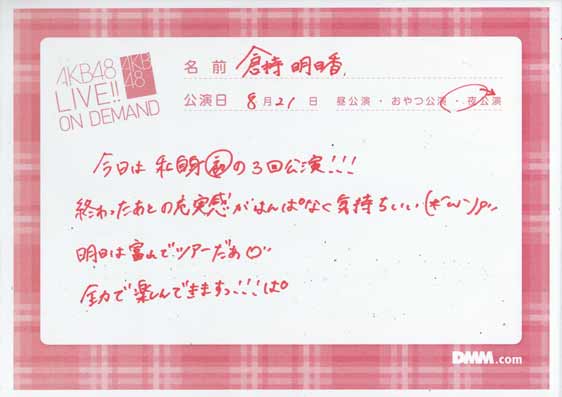 AKB48
LIVE!!
ON DEMAND
AKB
48
名前 倉持明日香
公演日 8月21日 昼公演・おやつ公演・夜公演
今日は私自身初の3回公演!!!
終わったあとの充実感がはんぱなく気持ちいい
明日は富山でツアーだぁ♡
全力で楽しんできますっ!!!ぱ
DMM.com